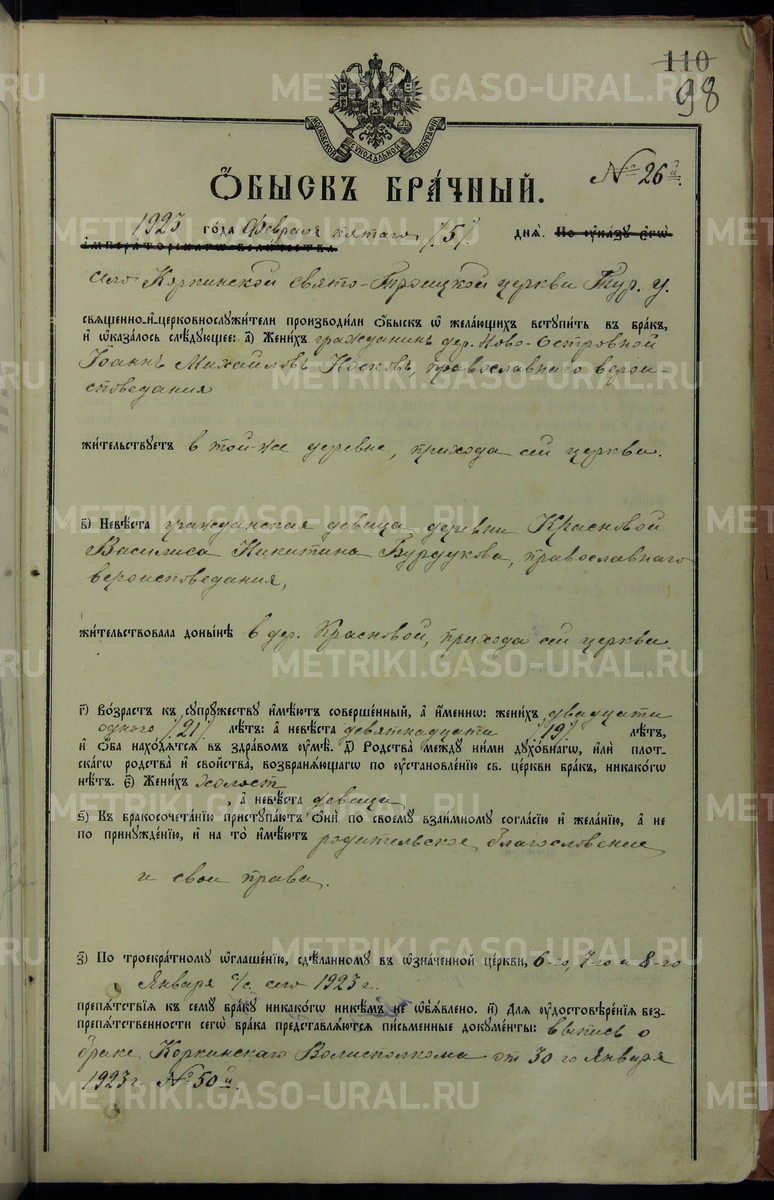 110
98
МОСКОВСКОЙ СУНОДАЛЬНОЙ ТИПОГРАФІИ
№ 26й.
Ѻ҆БЫСКЪ БРА́ЧНЫЙ.
1923 го́да Февраля пятаго /5/ днѧ̀. По ᲂу҆ка́зу є҆гѡ̀
и҆мпера́торскагѡ вели́чества
сего Коркинской Свято-Троицкой церкви Тур. у.
свѧще́нно-и҆-церковнослꙋжи́тели производи́ли ѻ҆́быскъ ѡ҆ жела́ющихъ встꙋпи́ть въ бра́къ,
и҆ ѡ҆каза́лось слѣ́дꙋющее: а҃) Жени́хъ гражданинъ дер. Ново-Островной
Іоаннъ Михаиловъ Носковъ, православнаго верои-
споведания
жи́тельствꙋетъ в той-же деревне, прихода сей церкви.
в҃) Невѣ́ста гражданская девица деревни Красновой
Василиса Никитина Бурдукова, православнаго
вероисповедания,
жи́тельствовала доны́нѣ в дер. Красновой, прихода сей церкви.
г҃) Во́зрастъ къ сꙋпрꙋ́жествꙋ и҆мѣ́ютъ соверше́нный, а҆ и҆́меннѡ: жени́хъ двадцати
одного /21/ лѣ́тъ: а҆ невѣ́ста девятнадцати /19/ лѣ́тъ,
и҆ ѻ҆́ба нахо́дѧтсѧ въ здра́вомъ ᲂу҆мѣ̀. д҃) Родства̀ междꙋ̀ ни́ми дꙋхо́внагѡ, и҆лѝ плот-
ска́гѡ родства̀ и҆ сво́йства, возбранѧ́ющагѡ по ᲂу҆становле́нїю св. це́ркви бра́къ, никако́гѡ
нѣ́тъ. є҃) Жени́хъ холост
, а҆ невѣ́ста девица
ѕ҃) Къ бракосочета́нїю пристꙋпа́ютъ ѻ҆нѝ по своемꙋ̀ взаи́мномꙋ согла́сїю и҆ жела́нїю, а҆ не
по принꙋжде́нїю, и҆ на то̀ и҆мѣ́ютъ родительское благословение
и свои права.
з҃) По троекра́тномꙋ ѡ҆глаше́нїю, сдѣ́ланномꙋ въ ѡ҆зна́ченной це́ркви, 6-го, 7-го и 8-го
Января с/с. сего 1923 г.
препѧ́тствїѧ къ семꙋ̀ бра́кꙋ никако́гѡ никѣ́мъ не ѡ҆б̾ѧ́влено. и҃) Длѧ ᲂу҆достовѣре́нїѧ без-
препѧ́тственности сегѡ̀ бра́ка представлѧ́ютсѧ пи́сьменные докꙋме́нты: выпись о
браке Коркинскаго Волисполкома от 30-го Января
1923 г. № 50й.
METRIKI.GASO-URAL.RU